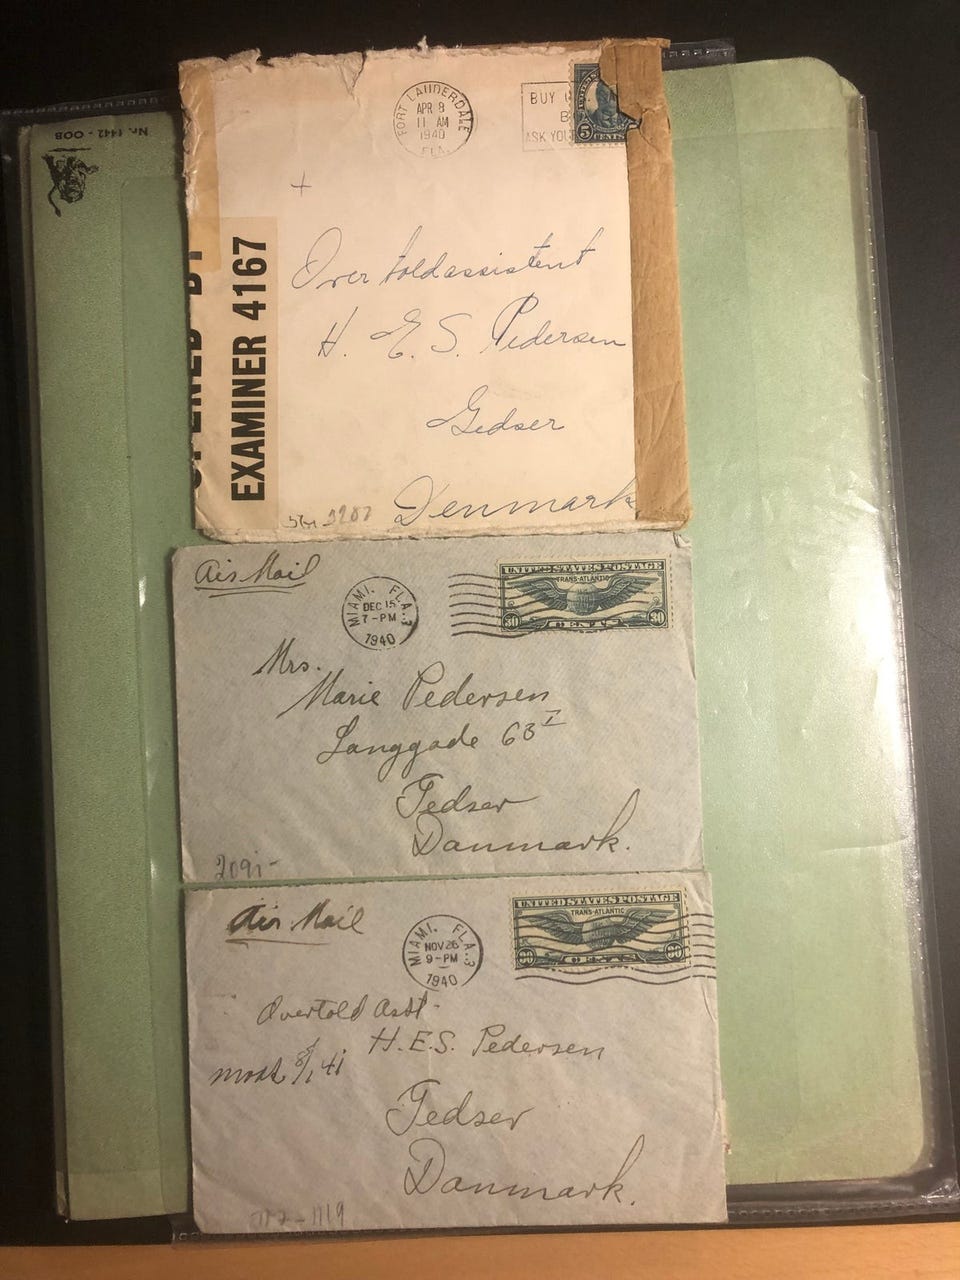 Nr. 1442 - 008
FORT LAUDERDALE
APR 8
11 AM
1940
FLA.
BUY
ASK YOU
UNITED STATES
5
CENTS
+
OPENED BY
EXAMINER 4167
Overtoldassistent
H. E. S. Pedersen
Gedser
Denmark
Air Mail
MIAMI, FLA. 3
DEC 15
7-PM
1940
UNITED STATES POSTAGE
TRANS-ATLANTIC
30 CENTS 30
Mrs.
Marie Pedersen
Langgade 63 I
Gedser
Danmark.
209
Air Mail
MIAMI, FLA. 3
NOV 26
9-PM
1940
UNITED STATES POSTAGE
TRANS-ATLANTIC
30 CENTS 30
Overtold Asst.
H.E.S. Pedersen
41
Gedser
Danmark.
1119